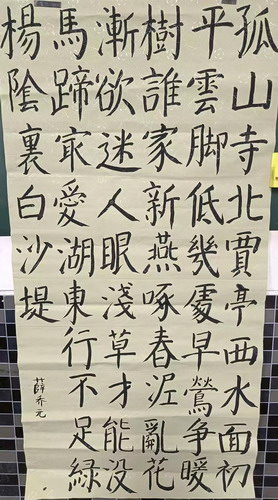 孤山寺北賈亭西水面初
平雲脚低幾處早鶯争暖
樹誰家新燕啄春泥亂花
漸欲迷人眼淺草才能没
馬蹄冣愛湖東行不足綠
楊陰裏白沙堤
薛乔元